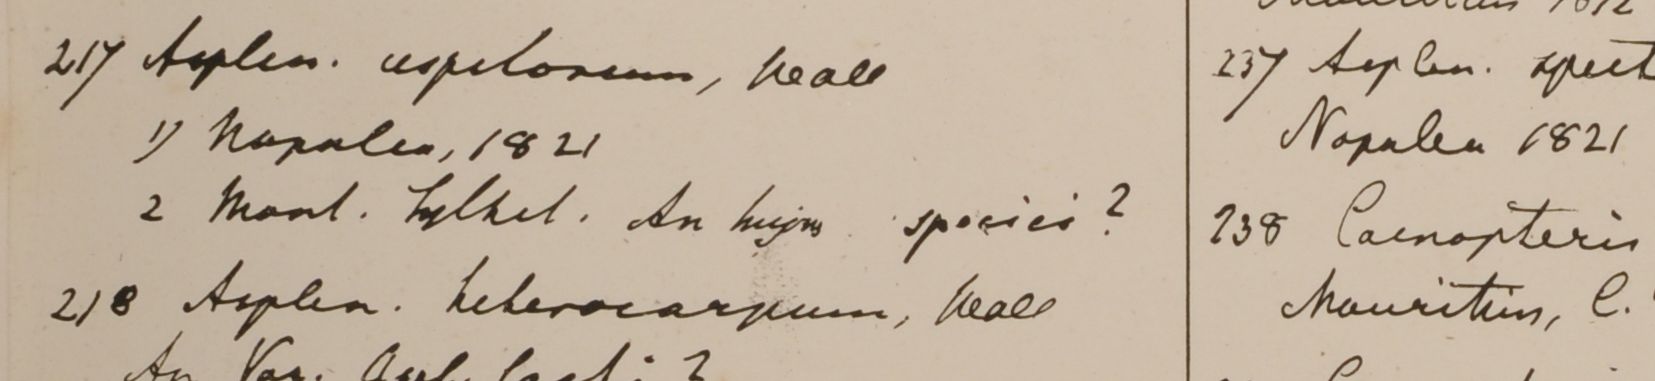 217 Asplen. cespitosum, Wall
1) Napalea, 1821
2 Mont. Sylhet. An hujus speciei?
218 Asplen. heterocarpum, Wall
An Var.
1812
237 Asplen. spect
Napalea 1821
238 Caenopteris
Mauritius, C.